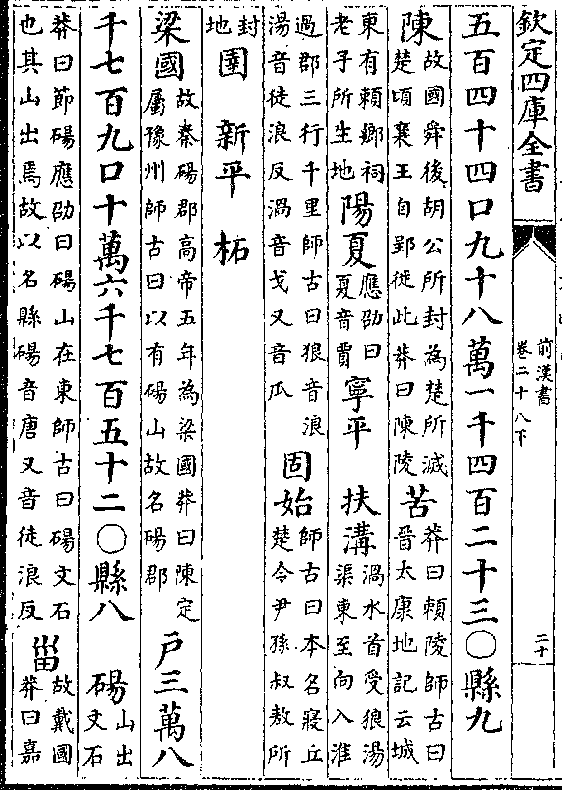 欽定四庫全書
前漢書
卷二十八下
二十
五百四十四口九十八萬一千四百二十三〇縣九
陳故國舜後胡公所封為楚所滅楚頃襄王自郢徙此莽曰陳陵苦莽曰頼陵師古曰晉太康地記云城
東有頼鄉祠老子所生地陽夏應劭曰夏音賈寧平 扶溝渦水首受狼湯渠東至向入淮
過郡三行千里師古曰狼音浪湯音徒浪反渦音戈又音瓜固始師古曰本名寢丘楚令尹孫叔敖所
封地圉 新平 柘
梁國故秦碭郡高帝五年為梁國莽曰陳定屬豫州師古曰以有碭山故名碭郡户三萬八
千七百九口十萬六千七百五十二〇縣八 碭山出文石
莽曰節碭應劭曰碭山在東師古曰碭文石也其山出焉故以名縣碭音唐又音徒浪反甾故戴國莽曰嘉